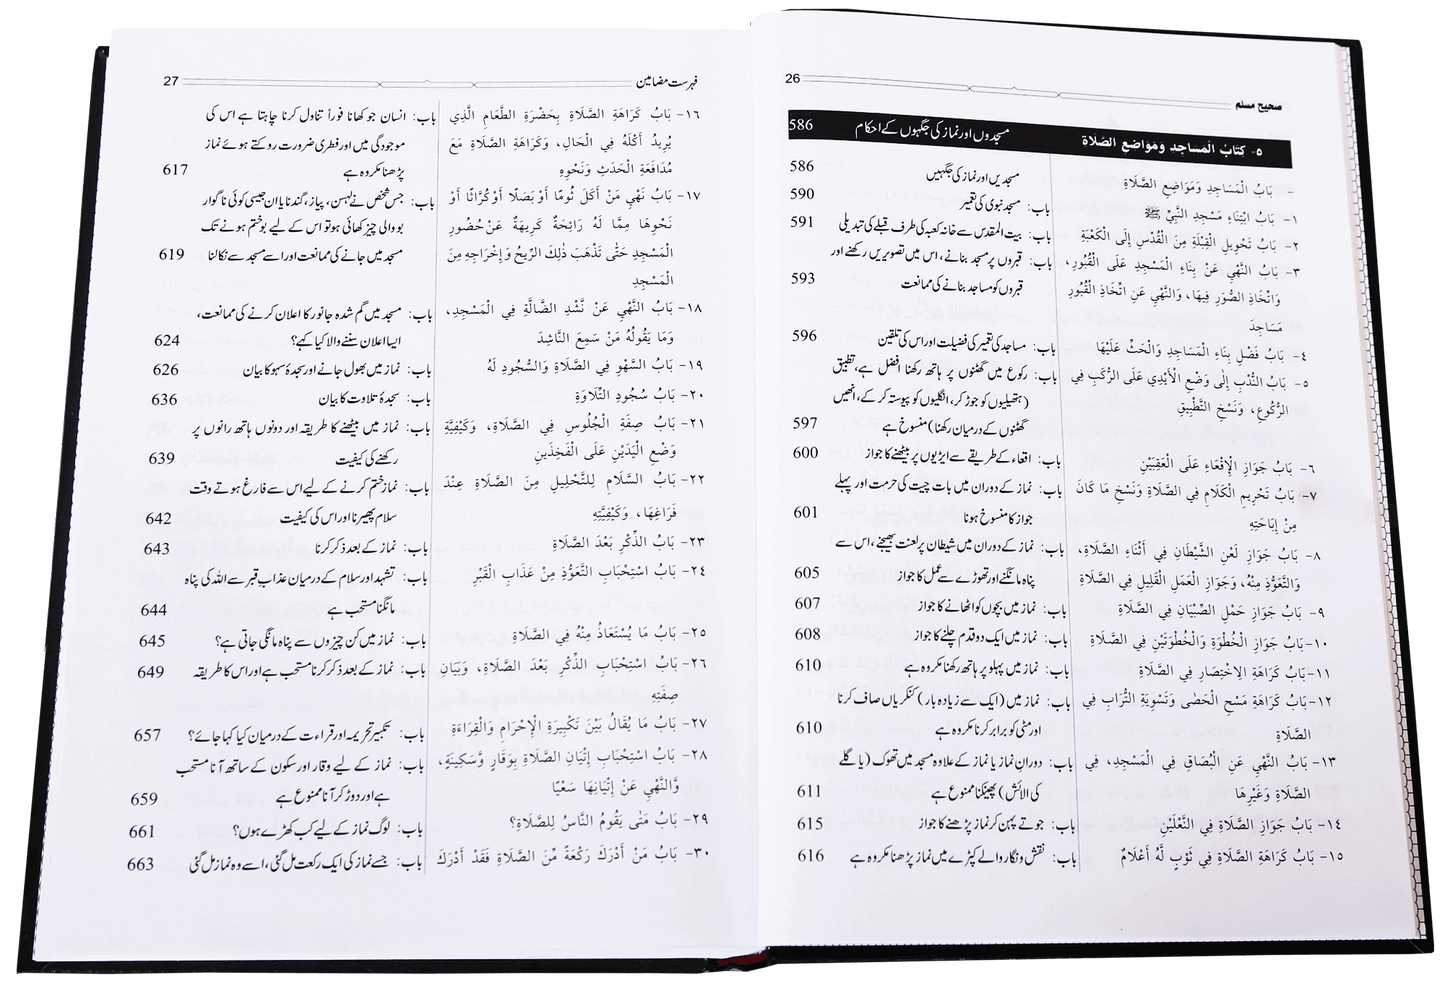 26
صحيح مسلم
٥- كتابُ الْمَساجِد وَمَوَاضعِ الصَّلاة مسجدوں اور نماز کی جگہوں کے احکام 586
- بَابُ الْمَسَاجِدِ وَمَوَاضِعِ الصَّلَاةِ مسجدیں اور نماز کی جگہیں 586
١- بَابُ ابْتِنَاءِ مَسْجِدِ النَّبِيِّ ﷺ باب: مسجد نبوی کی تعمیر 590
٢- بَابُ تَحْوِيلِ الْقِبْلَةِ مِنَ الْقُدْسِ إِلَى الْكَعْبَةِ باب: بیت المقدس سے خانہ کعبہ کی طرف قبلے کی تبدیلی 591
٣- بَابُ النَّهْيِ عَنْ بِنَاءِ الْمَسْجِدِ عَلَى الْقُبُورِ، باب: قبروں پر مسجد بنانے، اس میں تصویریں رکھنے اور
وَاتِّخَاذِ الصُّوَرِ فِيهَا، وَالنَّهْيِ عَنِ اتِّخَاذِ الْقُبُورِ قبروں کو مساجد بنانے کی ممانعت 593
مَسَاجِدَ
٤- بَابُ فَضْلِ بِنَاءِ الْمَسَاجِدِ وَالْحَثِّ عَلَيْهَا باب: مساجد کی تعمیر کی فضیلت اور اس کی تلقین 596
٥- بَابُ النَّدْبِ إِلَى وَضْعِ الْأَيْدِي عَلَى الرُّكَبِ فِي باب: رکوع میں گھٹنوں پر ہاتھ رکھنا افضل ہے، تطبیق
الرُّكُوعِ، وَنَسْخِ التَّطْبِيقِ (ہتھیلیوں کو جوڑ کر، انگلیوں کو پیوستہ کر کے، انھیں
گھٹنوں کے درمیان رکھنا) منسوخ ہے 597
٦- بَابُ جَوَازِ الْإِقْعَاءِ عَلَى الْعَقِبَيْنِ باب: اقعاء کے طریقے سے ایڑیوں پر بیٹھنے کا جواز 600
٧- بَابُ تَحْرِيمِ الْكَلَامِ فِي الصَّلَاةِ وَنَسْخِ مَا كَانَ باب: نماز کے دوران میں بات چیت کی حرمت اور پہلے
مِنْ إِبَاحَتِهِ جواز کا منسوخ ہونا 601
٨- بَابُ جَوَازِ لَعْنِ الشَّيْطَانِ فِي أَثْنَاءِ الصَّلَاةِ، باب: نماز کے دوران میں شیطان پر لعنت بھیجنے، اس سے
وَالتَّعَوُّذِ مِنْهُ، وَجَوَازِ الْعَمَلِ الْقَلِيلِ فِي الصَّلَاةِ پناہ مانگنے اور تھوڑے سے عمل کا جواز 605
٩- بَابُ جَوَازِ حَمْلِ الصِّبْيَانِ فِي الصَّلَاةِ باب: نماز میں بچوں کو اٹھانے کا جواز 607
١٠- بَابُ جَوَازِ الْخُطْوَةِ وَالْخُطْوَتَيْنِ فِي الصَّلَاةِ باب: نماز میں ایک دو قدم چلنے کا جواز 608
١١- بَابُ كَرَاهَةِ الِاخْتِصَارِ فِي الصَّلَاةِ باب: نماز میں پہلو پر ہاتھ رکھنا مکروہ ہے 610
١٢- بَابُ كَرَاهَةِ مَسْحِ الْحَصٰى وَتَسْوِيَةِ التُّرَابِ فِي باب: نماز میں (ایک سے زیادہ بار) کنکریاں صاف کرنا
الصَّلَاةِ اور مٹی کو برابر کرنا مکروہ ہے 610
١٣- بَابُ النَّهْيِ عَنِ الْبُصَاقِ فِي الْمَسْجِدِ، فِي باب: دوران نماز یا نماز کے علاوہ مسجد میں تھوک (یا گلے
الصَّلَاةِ وَغَيْرِهَا کی الائش) پھینکنا ممنوع ہے 611
١٤- بَابُ جَوَازِ الصَّلَاةِ فِي النَّعْلَيْنِ باب: جوتے پہن کر نماز پڑھنے کا جواز 615
١٥- بَابُ كَرَاهَةِ الصَّلَاةِ فِي ثَوْبٍ لَّهُ أَعْلَامٌ باب: نقش و نگار والے کپڑے میں نماز پڑھنا مکروہ ہے 616
فہرست مضامین 27
١٦- بَابُ كَرَاهَةِ الصَّلَاةِ بِحَضْرَةِ الطَّعَامِ الَّذِي باب: انسان جو کھانا فوراً تناول کرنا چاہتا ہے اس کی
يُرِيدُ أَكْلَهُ فِي الْحَالِ، وَكَرَاهَةِ الصَّلَاةِ مَعَ موجودگی میں اور فطری ضرورت روکتے ہوئے نماز
مُدَافَعَةِ الْحَدَثِ وَنَحْوِهِ پڑھنا مکروہ ہے 617
١٧- بَابُ نَهْيِ مَنْ أَكَلَ ثُومًا أَوْ بَصَلًا أَوْ كُرَّاثًا أَوْ باب: جس شخص نے لہسن، پیاز، گندنا یا ان جیسی کوئی ناگوار
نَحْوِهَا مِمَّا لَهُ رَائِحَةٌ كَرِيهَةٌ عَنْ حُضُورِ بو والی چیز کھائی ہو تو اس کے لیے بو ختم ہونے تک
الْمَسْجِدِ حَتّٰى تَذْهَبَ ذٰلِكَ الرِّيحُ وَإِخْرَاجِهِ مِنَ مسجد میں جانے کی ممانعت اور اسے مسجد سے نکالنا 619
الْمَسْجِدِ
١٨- بَابُ النَّهْيِ عَنْ نَشْدِ الضَّالَّةِ فِي الْمَسْجِدِ، باب: مسجد میں گم شدہ جانور کا اعلان کرنے کی ممانعت،
وَمَا يَقُولُهُ مَنْ سَمِعَ النَّاشِدَ ایسا اعلان سننے والا کیا کہے؟ 624
١٩- بَابُ السَّهْوِ فِي الصَّلَاةِ وَالسُّجُودِ لَهُ باب: نماز میں بھول جانے اور سجدۂ سہو کا بیان 626
٢٠- بَابُ سُجُودِ التِّلَاوَةِ باب: سجدۂ تلاوت کا بیان 636
٢١- بَابُ صِفَةِ الْجُلُوسِ فِي الصَّلَاةِ، وَكَيْفِيَّةِ باب: نماز میں بیٹھنے کا طریقہ اور دونوں ہاتھ رانوں پر
وَضْعِ الْيَدَيْنِ عَلَى الْفَخِذَيْنِ رکھنے کی کیفیت 639
٢٢- بَابُ السَّلَامِ لِلتَّحْلِيلِ مِنَ الصَّلَاةِ عِنْدَ باب: نماز ختم کرنے کے لیے اس سے فارغ ہوتے وقت
فَرَاغِهَا، وَكَيْفِيَّتِهِ سلام پھیرنا اور اس کی کیفیت 642
٢٣- بَابُ الذِّكْرِ بَعْدَ الصَّلَاةِ باب: نماز کے بعد ذکر کرنا 643
٢٤- بَابُ اسْتِحْبَابِ التَّعَوُّذِ مِنْ عَذَابِ الْقَبْرِ باب: تشہد اور سلام کے درمیان عذاب قبر سے اللہ کی پناہ
مانگنا مستحب ہے 644
٢٥- بَابُ مَا يُسْتَعَاذُ مِنْهُ فِي الصَّلَاةِ باب: نماز میں کن چیزوں سے پناہ مانگی جاتی ہے؟ 645
٢٦- بَابُ اسْتِحْبَابِ الذِّكْرِ بَعْدَ الصَّلَاةِ، وَبَيَانِ باب: نماز کے بعد ذکر کرنا مستحب ہے اور اس کا طریقہ 649
صِفَتِهِ
٢٧- بَابُ مَا يُقَالُ بَيْنَ تَكْبِيرَةِ الْإِحْرَامِ وَالْقِرَاءَةِ باب: تکبیر تحریمہ اور قراءت کے درمیان کیا کہا جائے؟ 657
٢٨- بَابُ اسْتِحْبَابِ إِتْيَانِ الصَّلَاةِ بِوَقَارٍ وَّسَكِينَةٍ، باب: نماز کے لیے وقار اور سکون کے ساتھ آنا مستحب
وَّالنَّهْيِ عَنْ إِتْيَانِهَا سَعْيًا ہے اور دوڑ کر آنا ممنوع ہے 659
٢٩- بَابُ مَتٰى يَقُومُ النَّاسُ لِلصَّلَاةِ؟ باب: لوگ نماز کے لیے کب کھڑے ہوں؟ 661
٣٠- بَابُ مَنْ أَدْرَكَ رَكْعَةً مِّنَ الصَّلَاةِ فَقَدْ أَدْرَكَ باب: جسے نماز کی ایک رکعت مل گئی، اسے وہ نماز مل گئی 663